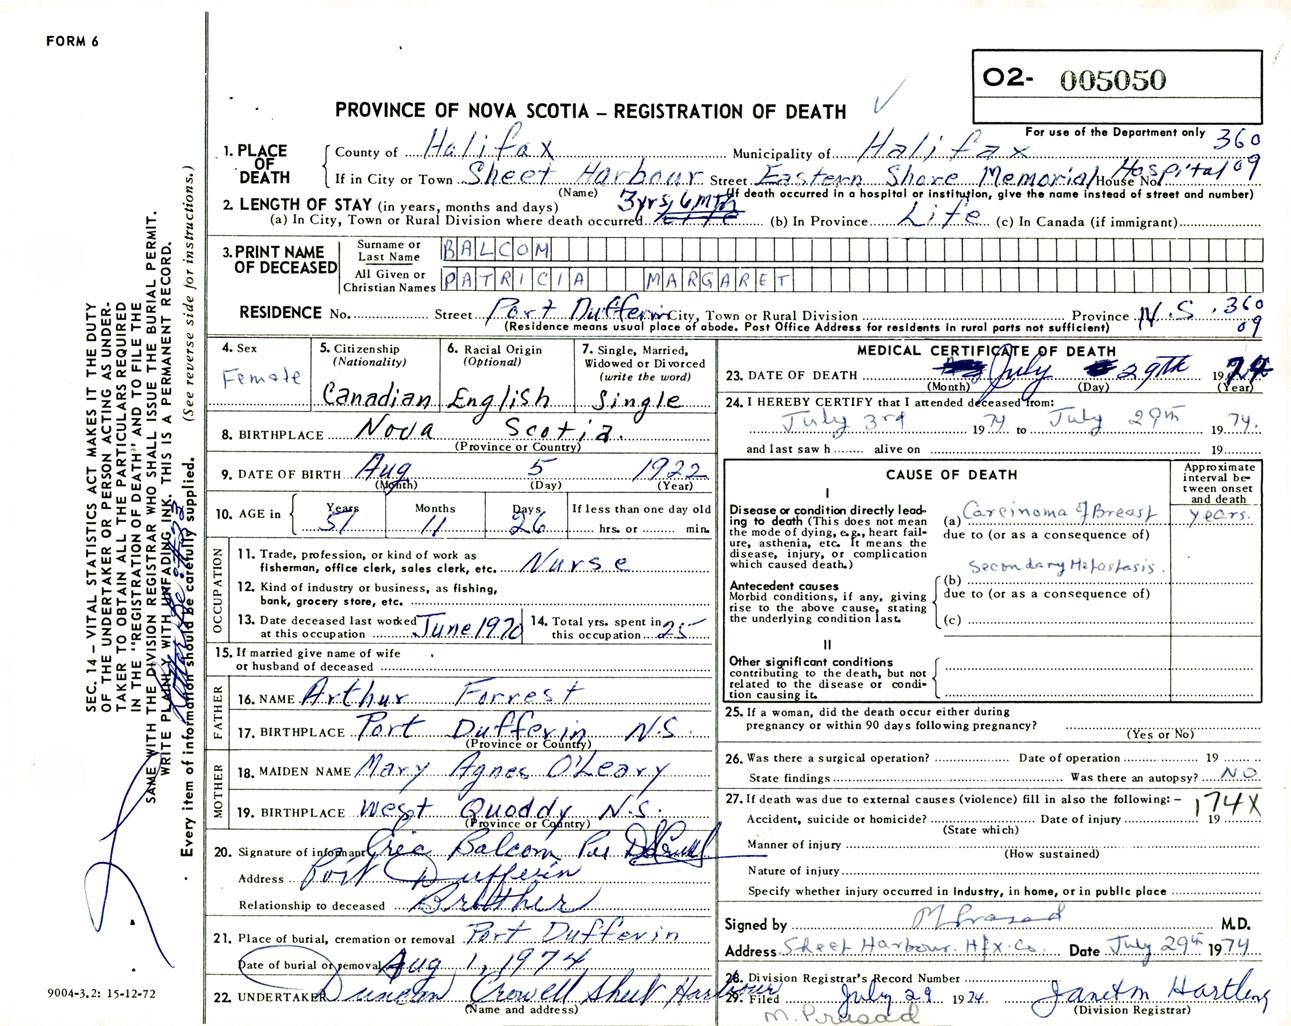 FORM 6
O2- 005050
PROVINCE OF NOVA SCOTIA – REGISTRATION OF DEATH
For use of the Department only 360
09
1. PLACE OF DEATH
County of Halifax Municipality of Halifax
If in City or Town Sheet Harbour Street Eastern Shore Memorial Hospital House No.
(Name) (If death occurred in a hospital or institution, give the name instead of street and number)
2. LENGTH OF STAY (in years, months and days) 3yrs, 6mth
(a) In City, Town or Rural Division where death occurred Life (b) In Province Life (c) In Canada (if immigrant)
3. PRINT NAME OF DECEASED
Surname or Last Name BALCOM
All Given or Christian Names PATRICIA MARGARET
RESIDENCE No. Street Port Dufferin City, Town or Rural Division Province N.S. 360
(Residence means usual place of abode. Post Office Address for residents in rural parts not sufficient) 09
4. Sex
Female
5. Citizenship
(Nationality)
Canadian
6. Racial Origin
(Optional)
English
7. Single, Married,
Widowed or Divorced
(write the word)
Single
8. BIRTHPLACE Nova Scotia.
(Province or Country)
9. DATE OF BIRTH Aug 5 1922
(Month) (Day) (Year)
10. AGE in Years Months Days If less than one day old
51 11 26 hrs. or min.
OCCUPATION
11. Trade, profession, or kind of work as
fisherman, office clerk, sales clerk, etc. Nurse
12. Kind of industry or business, as fishing,
bank, grocery store, etc.
13. Date deceased last worked
at this occupation June 1970
14. Total yrs. spent in
this occupation 25
15. If married give name of wife
or husband of deceased
FATHER
16. NAME Arthur Forrest
17. BIRTHPLACE Port Dufferin N.S.
(Province or Country)
MOTHER
18. MAIDEN NAME Mary Agnes O'Leary
19. BIRTHPLACE West Quoddy N.S.
(Province or Country)
20. Signature of informant Eric Balcom Per
Address Port Dufferin
Relationship to deceased Brother
21. Place of burial, cremation or removal Port Dufferin
Date of burial or removal Aug 1, 1974
22. UNDERTAKER Duncan Crowell Sheet Harbour
(Name and address)
MEDICAL CERTIFICATE OF DEATH
23. DATE OF DEATH July 29th 1974
(Month) (Day) (Year)
24. I HEREBY CERTIFY that I attended deceased from:
July 3rd 1974 to July 29th 1974.
and last saw h alive on 19
CAUSE OF DEATH
Approximate
interval be-
tween onset
and death
I
Disease or condition directly lead-
ing to death (This does not mean
the mode of dying, e.g., heart fail-
ure, asthenia, etc. It means the
disease, injury, or complication
which caused death.)
(a) Carcinoma of Breast years.
due to (or as a consequence of)
Secondary Metastasis.
Antecedent causes
Morbid conditions, if any, giving
rise to the above cause, stating
the underlying condition last.
(b)
due to (or as a consequence of)
(c)
II
Other significant conditions
contributing to the death, but not
related to the disease or condi-
tion causing it.
25. If a woman, did the death occur either during
pregnancy or within 90 days following pregnancy?
(Yes or No)
26. Was there a surgical operation? Date of operation 19
State findings Was there an autopsy? NO
27. If death was due to external causes (violence) fill in also the following: – 174X
Accident, suicide or homicide? Date of injury 19
(State which)
Manner of injury
(How sustained)
Nature of injury
Specify whether injury occurred in industry, in home, or in public place
Signed by M Prasad M.D.
Address Sheet Harbour. Hfx. Co. Date July 29th 1974
28. Division Registrar's Record Number
29. Filed July 29 1974 Janet M Hartling
(Division Registrar)
M. Prasad
SEC. 14 – VITAL STATISTICS ACT MAKES IT THE DUTY
OF THE UNDERTAKER OR PERSON ACTING AS UNDER-
TAKER TO OBTAIN ALL THE PARTICULARS REQUIRED
IN THE "REGISTRATION OF DEATH" AND TO FILE THE
SAME WITH THE DIVISION REGISTRAR WHO SHALL ISSUE THE BURIAL PERMIT.
WRITE PLAINLY WITH UNFADING INK. THIS IS A PERMANENT RECORD.
Every item of information should be carefully supplied. (See reverse side for instructions.)
9004-3.2: 15-12-72